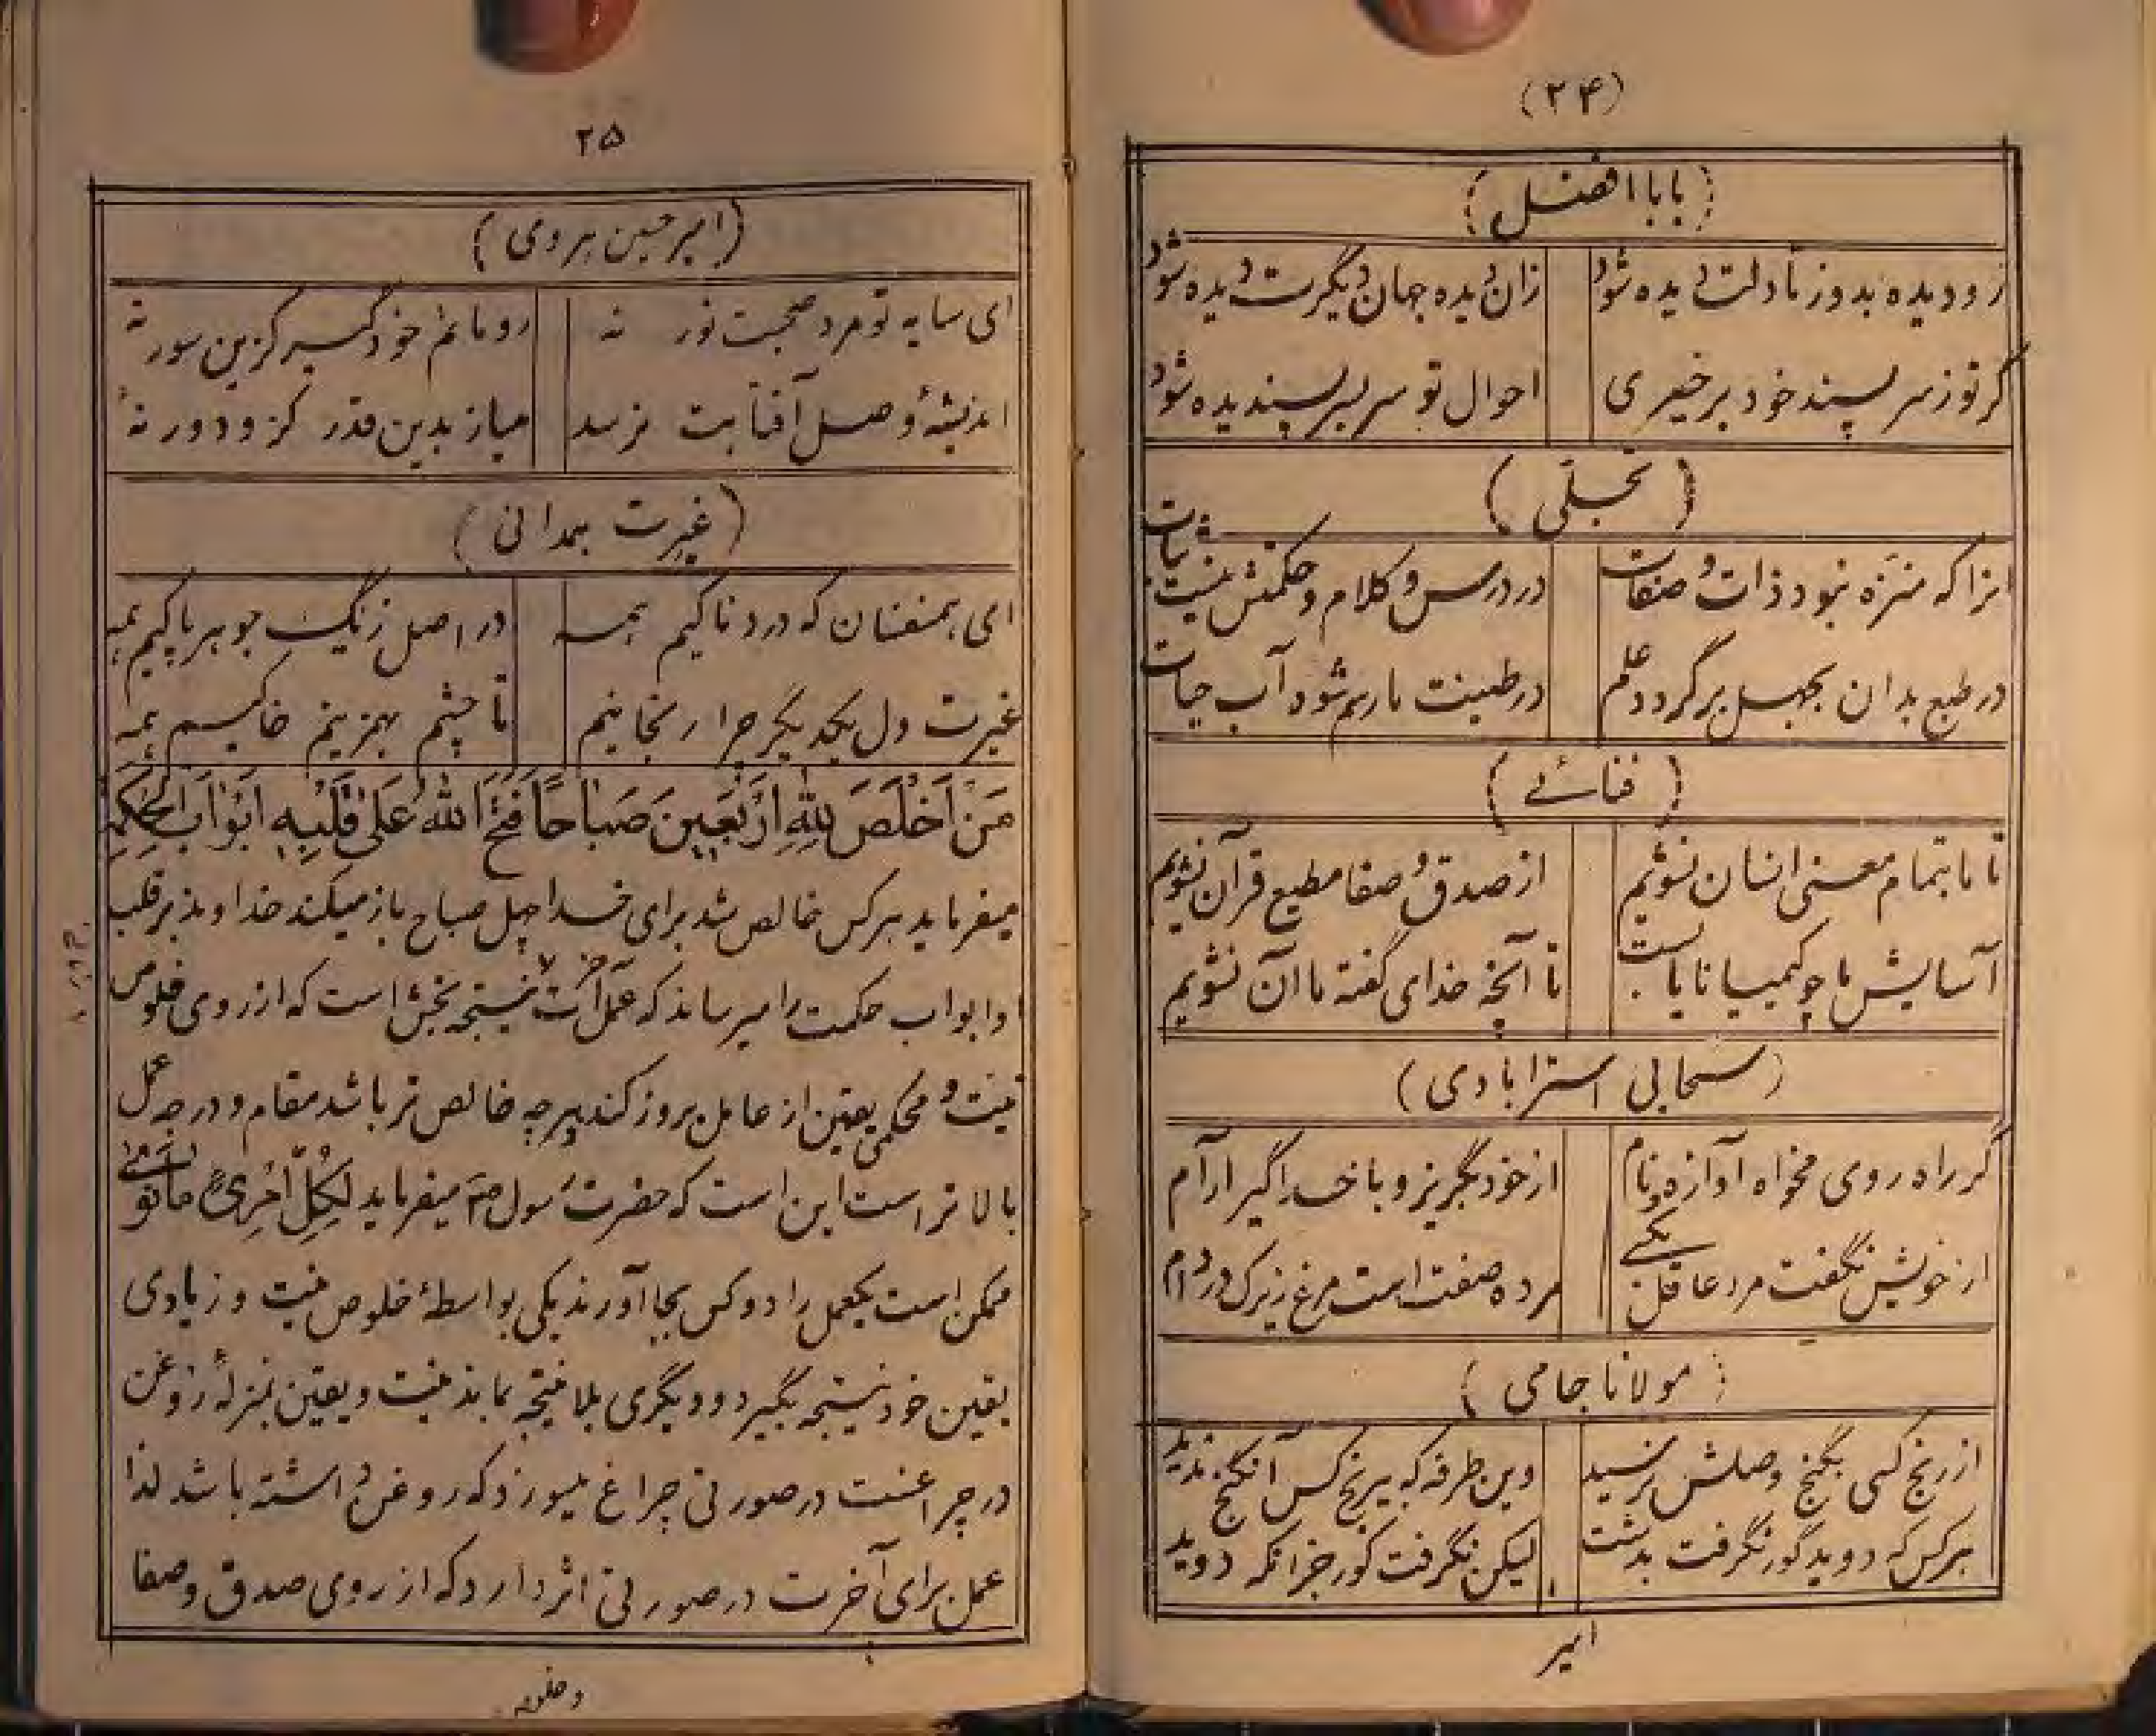 (۲۴)
(بابا افضل)
رو دیده بدوز تا دلت دیده شود زان دیده جهان دیگرت دیده شود
گر تو ز سر پسند خود برخیزی احوال تو سر بسر پسندیده شود
(تجلّی)
انرا که منزّه نبود ذات و صفات در درس و کلام و حکمتش نیست ثبات
در طبع بدان بجهل برگردد علم در طینت مار سم شود آب حیات
(فنائی)
تا ما بتمام معنی انسان نشویم از صدق و صفا مطیع قرآن نشویم
آسایش ما چو کیمیا نایابست تا آنچه خدای گفته ما آن نشویم
(سحابی استرابادی)
گر راه روی مخواه آوازه و نام از خود بگریز و با خدا گیر ارآم
از خویش نگفت مرد عاقل یکی مرده صفت است مرغ زیرک در دام
(مولانا جامی)
از رنج کسی بگنج وصلش نرسید وین طرفه که بیرنج کس آنگنج ندید
هر کس که دوید گور نگرفت بدشت لیکن نگرفت گور جز انکه دوید
امیر
۲۵
(امیر حسین هروی)
ای سایه تو مرد صحبت نور نه رو ماتم خود گیر کزین سور نه
اندیشهٔ وصل آفتابت نرسد میاز بدین قدر کزو دور نهٔ
(غیرت همدانی)
ای همنفسان که دردناکیم همه در اصل ز یک جوهر پاکیم همه
غیرت دل یکدیگر چرا رنجانیم تا چشم بهم زنیم خاکیم همه
مَنْ اَخْلَصَ لِلّهِ اَرْبَعینَ صَباحًا فَتَحَ اللهُ عَلی قَلْبِهِ اَبْوابَ الْحِکْمَهِ
میفرماید هر کس خالص شد برای خدا چهل صباح باز میکند خداوند بر قلب
او ابواب حکمت را میرساند که عمل آخرت نتیجه بخش است که از روی خلوص
نیت و محکمی یقین از عامل بروز کند هر چه خالص تر باشد مقام و درجه عمل
بالاتر است این است که حضرت رسول ص میفرماید لِکُلِّ امْرِیءٍ مانَوی
ممکن است یکعمل را دو کس بجا آورند یکی بواسطهٔ خلوص نیت و زیادی
یقین خود نتیجه بگیرد و دیگری بلا نتیجه بماند نیت و یقین بمنزلهٔ روغن
در چراغست در صورتی چراغ میسوزد که روغن داشته باشد لذا
عمل برای آخرت در صورتی اثر دارد که از روی صدق و صفا